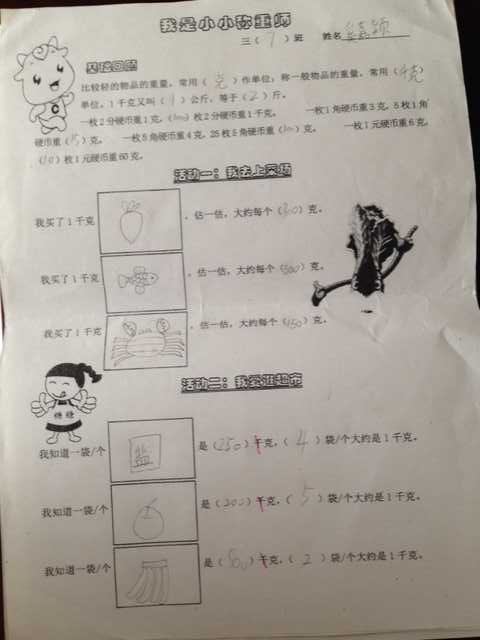 我是小小称重师
三（7）班 姓名
基础回顾
比较轻的物品的重量，常用（克）作单位；称一般物品的重量，常用（千克）
单位。1千克又叫（1）公斤，等于（2）斤。
一枚2分硬币重1克，（1000）枚2分硬币重1千克。 一枚1角硬币重3克，5枚1角
硬币重（15）克。 一枚5角硬币重4克，25枚5角硬币重（100）克。 一枚1元硬币重6克，
（10）枚1元硬币重60克。
活动一：我去上菜场
我买了1千克 ，估一估，大约每个（300）克。
我买了1千克 ，估一估，大约每个（500）克。
我买了1千克 ，估一估，大约每个（150）克。
活动二：我爱逛超市
糖糖
我知道一袋/个 盐 是（250）千克，（4）袋/个大约是1千克。
我知道一袋/个 是（200）千克，（5）袋/个大约是1千克。
我知道一袋/个 是（500）千克，（2）袋/个大约是1千克。